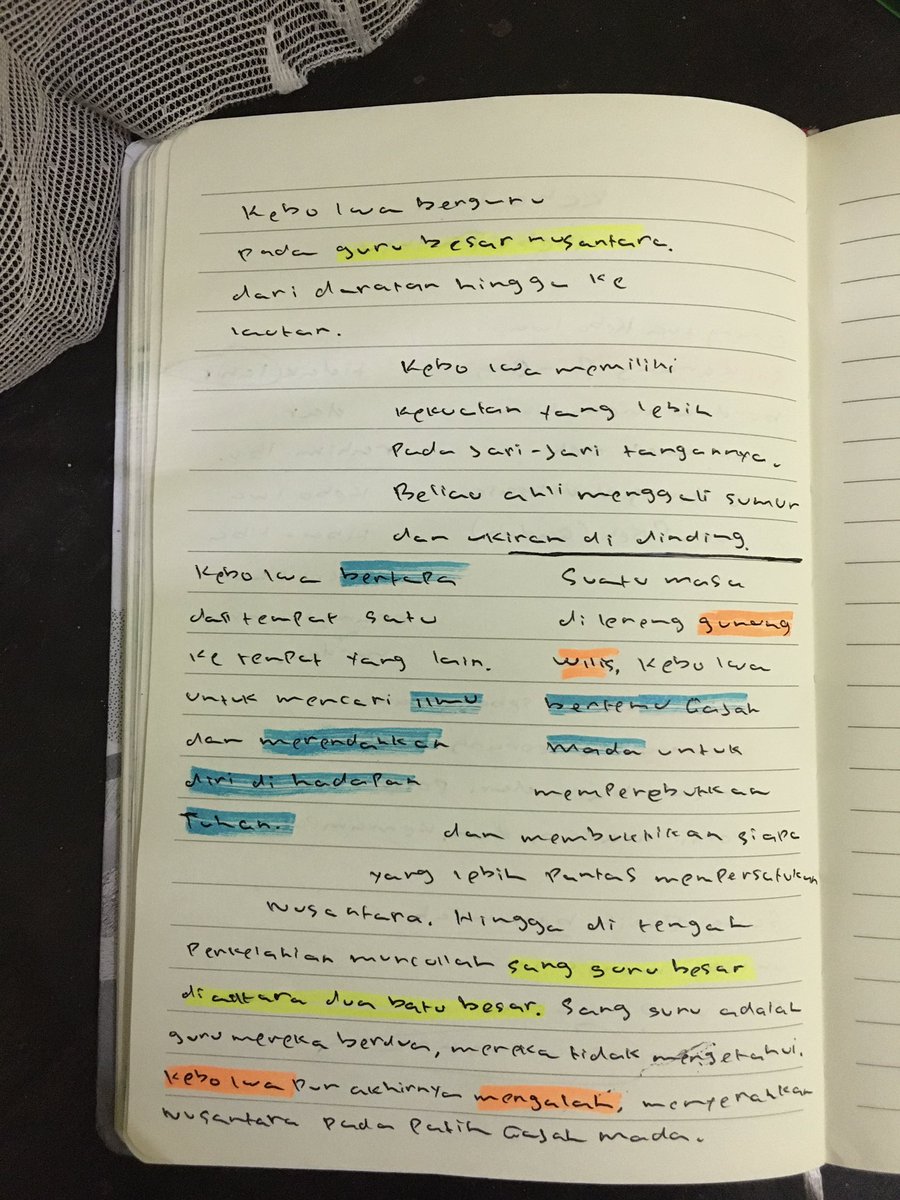 Kebo Iwa berguru
pada guru besar nusantara.
dari daratan hingga ke
lautan.
Kebo Iwa memiliki
kekuatan yang lebih
pada jari-jari tangannya.
Beliau ahli menggali sumur
dan ukiran di dinding.
Kebo Iwa bertapa
dari tempat satu
ke tempat yang lain.
untuk mencari ilmu
dan merendahkan
diri di hadapan
Tuhan.
Suatu masa
di lereng gunung
wilis, Kebo Iwa
bertemu Gajah
Mada untuk
memperebutkan
dan membuktikan siapa
yang lebih pantas mempersatukan
Nusantara. Hingga di tengah
perkelahian muncullah sang guru besar
diantara dua batu besar. Sang guru adalah
guru mereka berdua, mereka tidak mengetahui.
Kebo Iwa pun akhirnya mengalah, menyerahkan
Nusantara pada Patih Gajah Mada.